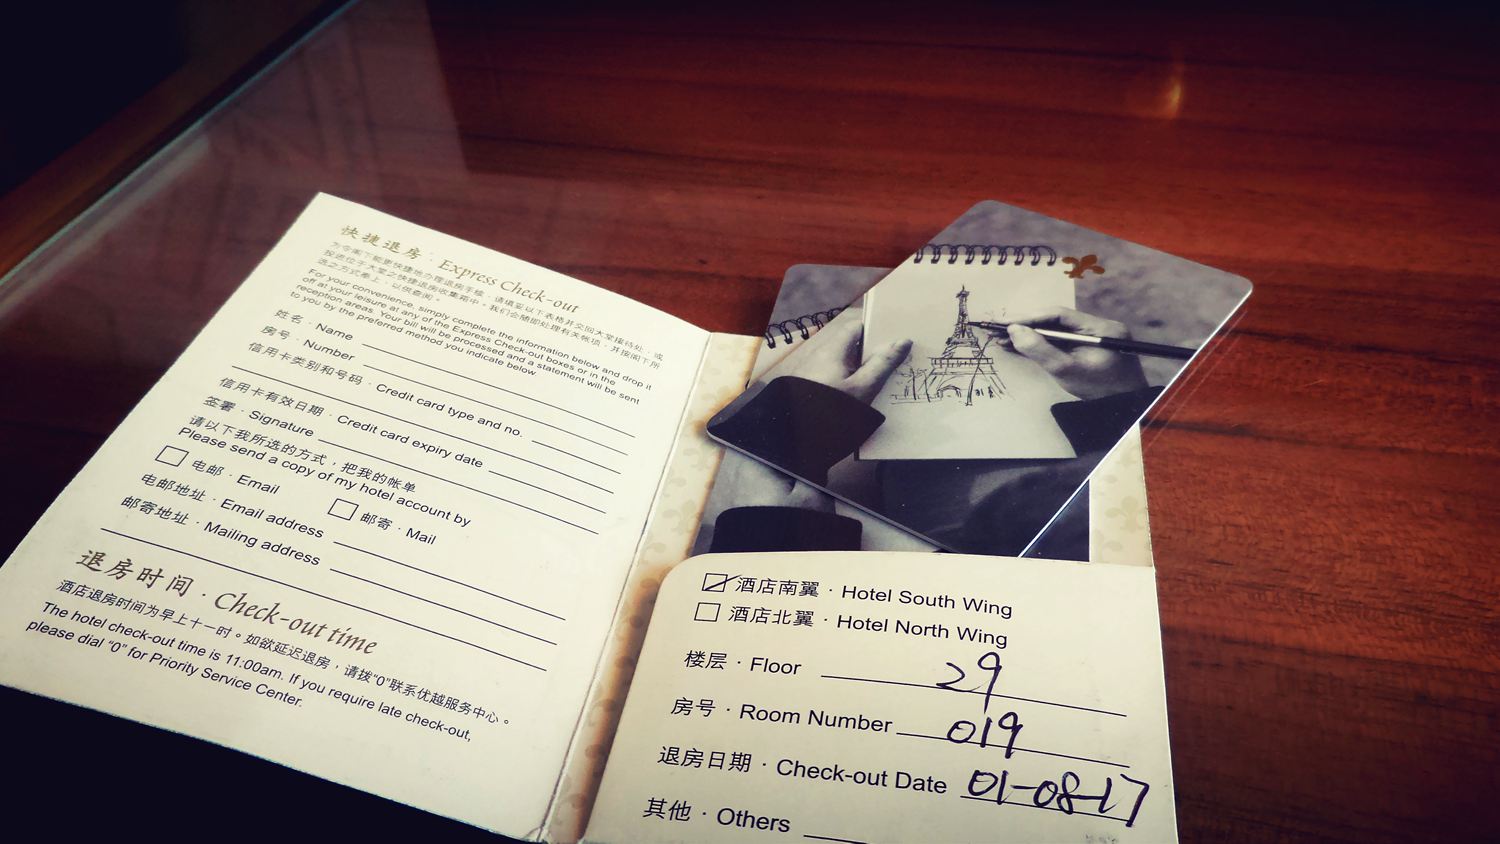 快捷退房 · Express Check-out
为令阁下能更快捷地办理退房手续，请填妥以下表格并交回大堂接待处，或
投进位于大堂之快捷退房收集箱中。我们会随即处理有关帐项，并按阁下所
选之方式奉上，以供查阅。
For your convenience, simply complete the information below and drop it
off at your leisure at any of the Express Check-out boxes or in the
reception areas. Your bill will be processed and a statement will be sent
to you by the preferred method you indicate below.
姓名 · Name
房号 · Number
信用卡类别和号码 · Credit card type and no.
信用卡有效日期 · Credit card expiry date
签署 · Signature
请以下我所选的方式，把我的帐单
Please send a copy of my hotel account by
电邮 · Email 邮寄 · Mail
电邮地址 · Email address
邮寄地址 · Mailing address
退房时间 · Check-out time
酒店退房时间为早上十一时。如欲延迟退房，请拨“0”联系优越服务中心。
The hotel check-out time is 11:00am. If you require late check-out,
please dial “0” for Priority Service Center.
酒店南翼 · Hotel South Wing
酒店北翼 · Hotel North Wing
楼层 · Floor 29
房号 · Room Number 019
退房日期 · Check-out Date 01-08-17
其他 · Others